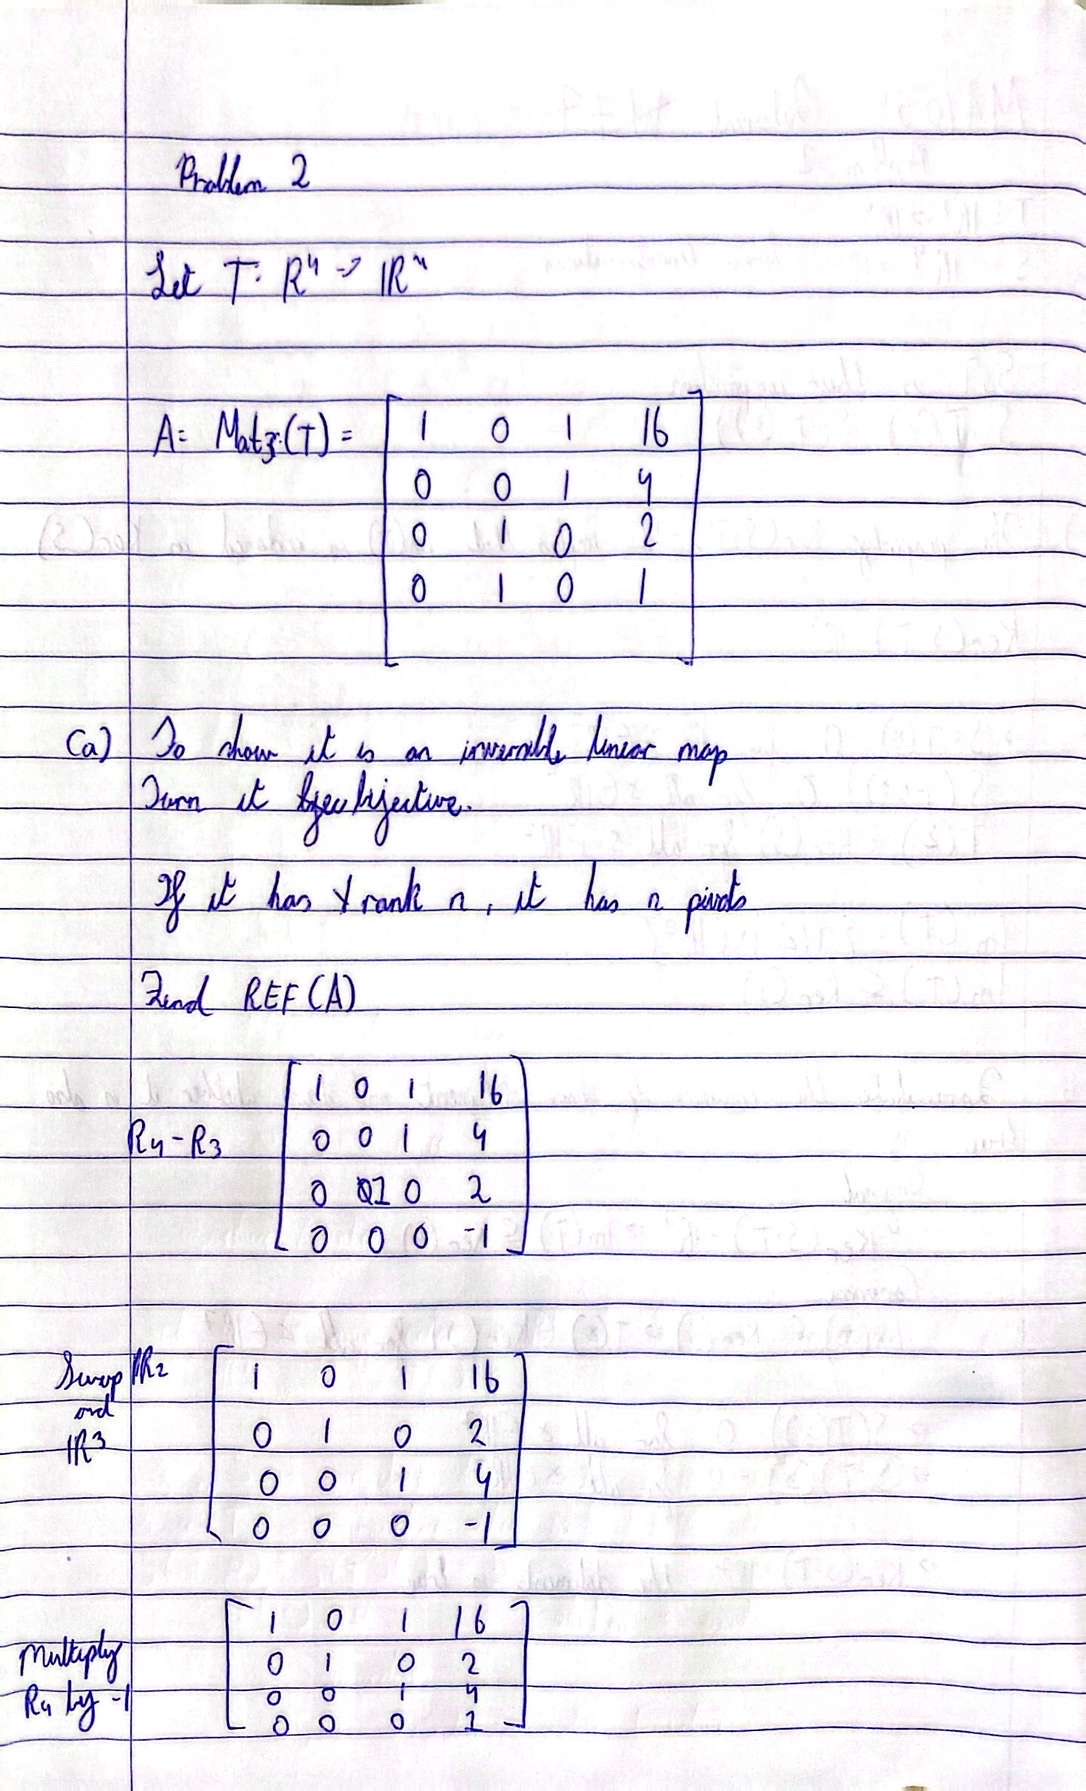 Problem 2
Let T: R⁴ -> IR⁴
A = Mat₃(T) =
1 0 1 16
0 0 1 4
0 1 0 2
0 1 0 1
(a) To show it is an invertible linear map
Turn it bijective.
If it has rank n, it has n pivots
Find REF(A)
R4-R3
1 0 1 16
0 0 1 4
0 1 0 2
0 0 0 -1
Swap IR2
and
IR3
1 0 1 16
0 1 0 2
0 0 1 4
0 0 0 -1
Multiply
R4 by -1
1 0 1 16
0 1 0 2
0 0 1 4
0 0 0 1